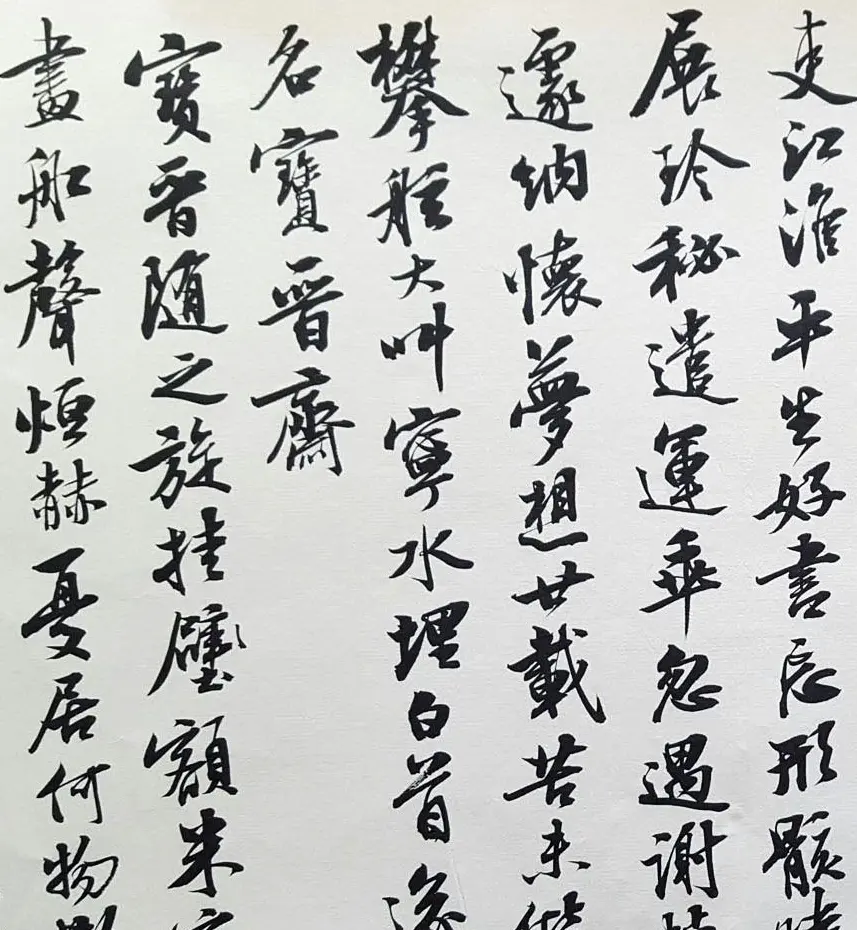 吏江淮平生好書忘形骸
展玲秘遣運乖忽遇謝
邃納懷夢想廿載苦未偕
攀舷大叫寧水埋白首
名寶晋齋
寶晋隨之旋挂壁額米
畫船聲烜赫憂居何物